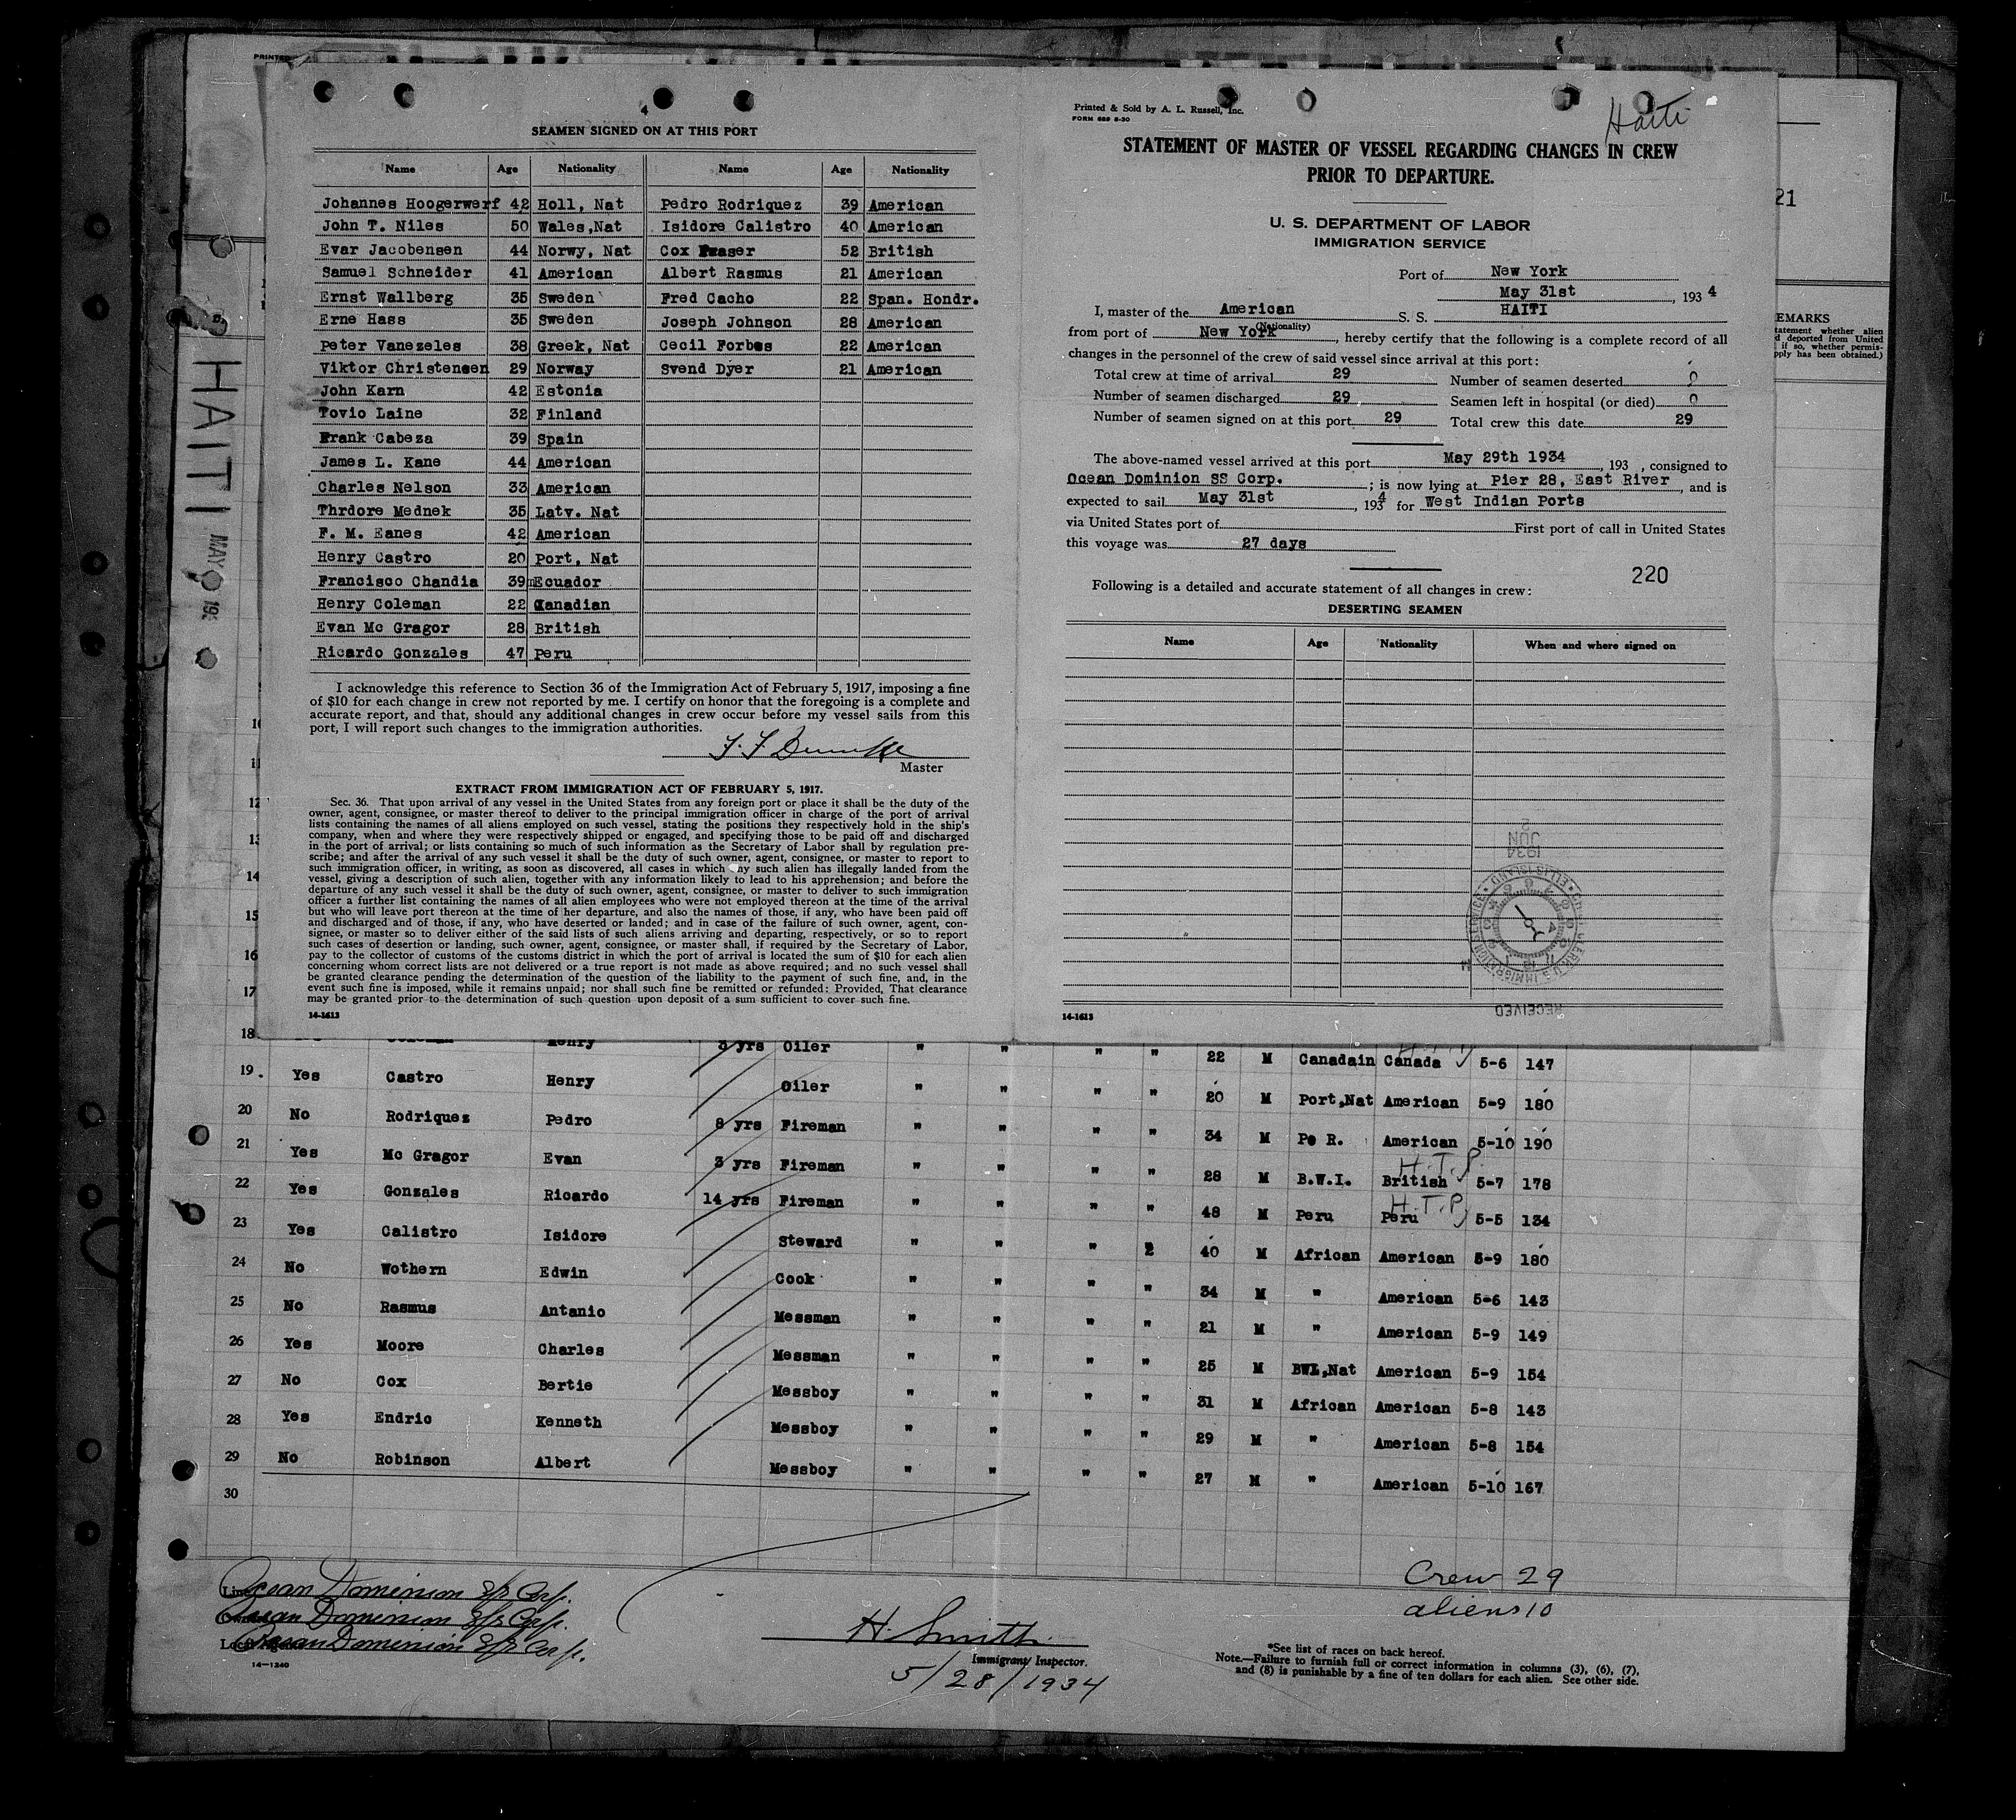 PRINTED
4
SEAMEN SIGNED ON AT THIS PORT
Name Age Nationality Name Age Nationality
Johannes Hoogerwerf 42 Holl, Nat Pedro Rodriquez 39 American
John T. Niles 50 Wales,Nat Isidore Calistro 40 American
Evar Jacobensen 44 Norwy, Nat Cox Fraser 52 British
Samuel Schneider 41 American Albert Rasmus 21 American
Ernst Wallberg 35 Sweden Fred Cacho 22 Span. Hondr.
Erne Hass 35 Sweden Joseph Johnson 28 American
Peter Vanezeles 38 Greek, Nat Cecil Forbes 22 American
Viktor Christensen 29 Norway Svend Dyer 21 American
John Karn 42 Estonia
Tovio Laine 32 Finland
Frank Cabeza 39 Spain
James L. Kane 44 American
Charles Nelson 33 American
Thrdore Mednek 35 Latv. Nat
F. M. Eanes 42 American
Henry Castro 20 Port, Nat
Francisco Chandia 39 Ecuador
Henry Coleman 22 Canadian
Evan Mc Gragor 28 British
Ricardo Gonzales 47 Peru
I acknowledge this reference to Section 36 of the Immigration Act of February 5, 1917, imposing a fine
of $10 for each change in crew not reported by me. I certify on honor that the foregoing is a complete and
accurate report, and that, should any additional changes in crew occur before my vessel sails from this
port, I will report such changes to the immigration authorities.
Master
EXTRACT FROM IMMIGRATION ACT OF FEBRUARY 5, 1917.
Sec. 36. That upon arrival of any vessel in the United States from any foreign port or place it shall be the duty of the
owner, agent, consignee, or master thereof to deliver to the principal immigration officer in charge of the port of arrival
lists containing the names of all aliens employed on such vessel, stating the positions they respectively hold in the ship's
company, when and where they were respectively shipped or engaged, and specifying those to be paid off and discharged
in the port of arrival; or lists containing so much of such information as the Secretary of Labor shall by regulation pre-
scribe; and after the arrival of any such vessel it shall be the duty of such owner, agent, consignee, or master to report to
such immigration officer, in writing, as soon as discovered, all cases in which any such alien has illegally landed from the
vessel, giving a description of such alien, together with any information likely to lead to his apprehension; and before the
departure of any such vessel it shall be the duty of such owner, agent, consignee, or master to deliver to such immigration
officer a further list containing the names of all alien employees who were not employed thereon at the time of the arrival
but who will leave port thereon at the time of her departure, and also the names of those, if any, who have been paid off
and discharged and of those, if any, who have deserted or landed; and in case of the failure of such owner, agent, con-
signee, or master so to deliver either of the said lists of such aliens arriving and departing, respectively, or so to report
such cases of desertion or landing, such owner, agent, consignee, or master shall, if required by the Secretary of Labor,
pay to the collector of customs of the customs district in which the port of arrival is located the sum of $10 for each alien
concerning whom correct lists are not delivered or a true report is not made as above required; and no such vessel shall
be granted clearance pending the determination of the question of the liability to the payment of such fine, and, in the
event such fine is imposed, while it remains unpaid; nor shall such fine be remitted or refunded: Provided, That clearance
may be granted prior to the determination of such question upon deposit of a sum sufficient to cover such fine.
14-1613
Printed & Sold by A. L. Russell, Inc.
FORM 689 8-30
Haiti
STATEMENT OF MASTER OF VESSEL REGARDING CHANGES IN CREW
PRIOR TO DEPARTURE.
U. S. DEPARTMENT OF LABOR
IMMIGRATION SERVICE
Port of New York
May 31st, 1934
I, master of the American S. S. HAITI
(Nationality)
from port of New York, hereby certify that the following is a complete record of all
changes in the personnel of the crew of said vessel since arrival at this port:
Total crew at time of arrival 29 Number of seamen deserted 0
Number of seamen discharged 29 Seamen left in hospital (or died) 0
Number of seamen signed on at this port 29 Total crew this date 29
The above-named vessel arrived at this port May 29th 1934, 193 , consigned to
Ocean Dominion SS Corp. ; is now lying at Pier 28, East River, and is
expected to sail May 31st, 1934 for West Indian Ports
via United States port of First port of call in United States
this voyage was 27 days
220
Following is a detailed and accurate statement of all changes in crew:
DESERTING SEAMEN
Name Age Nationality When and where signed on
JUN 2
1934
ELLIS ISLAND
RECEIVED
14-1613
21
EMARKS
tatement whether alien
d deported from United
if so, whether permis-
pply has been obtained.)
HAITI MAY
10
11
12
13
14
15
16
17
18 Henry 3 yrs Oiler " " " " 22 M Canadain Canada 5-6 147
19 Yes Castro Henry Oiler " " " " 20 M Port,Nat American 5-9 180
20 No Rodriques Pedro 8 yrs Fireman " " " " 34 M Po R. American 5-10 190
21 Yes Mc Gragor Evan 3 yrs Fireman " " " " 28 M B.W.I. British H.T.P. 5-7 178
22 Yes Gonzales Ricardo 14 yrs Fireman " " " " 48 M Peru Peru H.T.P. 5-5 134
23 Yes Calistro Isidore Steward " " " 2 40 M African American 5-9 180
24 No Wothern Edwin Cook " " " " 34 M " American 5-6 143
25 No Rasmus Antanio Messman " " " " 21 M " American 5-9 149
26 Yes Moore Charles Messman " " " " 25 M BWI,Nat American 5-9 154
27 No Cox Bertie Messboy " " " " 31 M African American 5-8 143
28 Yes Endric Kenneth Messboy " " " " 29 M " American 5-8 154
29 No Robinson Albert Messboy " " " " 27 M " American 5-10 167
30
Ocean Dominion S/S Corp.
Ocean Dominion S/S Corp.
Ocean Dominion S/S Corp.
14-1240
H. Smith
Immigrant Inspector.
5/28/1934
Crew 29
aliens 10
*See list of races on back hereof.
Note.—Failure to furnish full or correct information in columns (3), (6), (7),
and (8) is punishable by a fine of ten dollars for each alien. See other side.